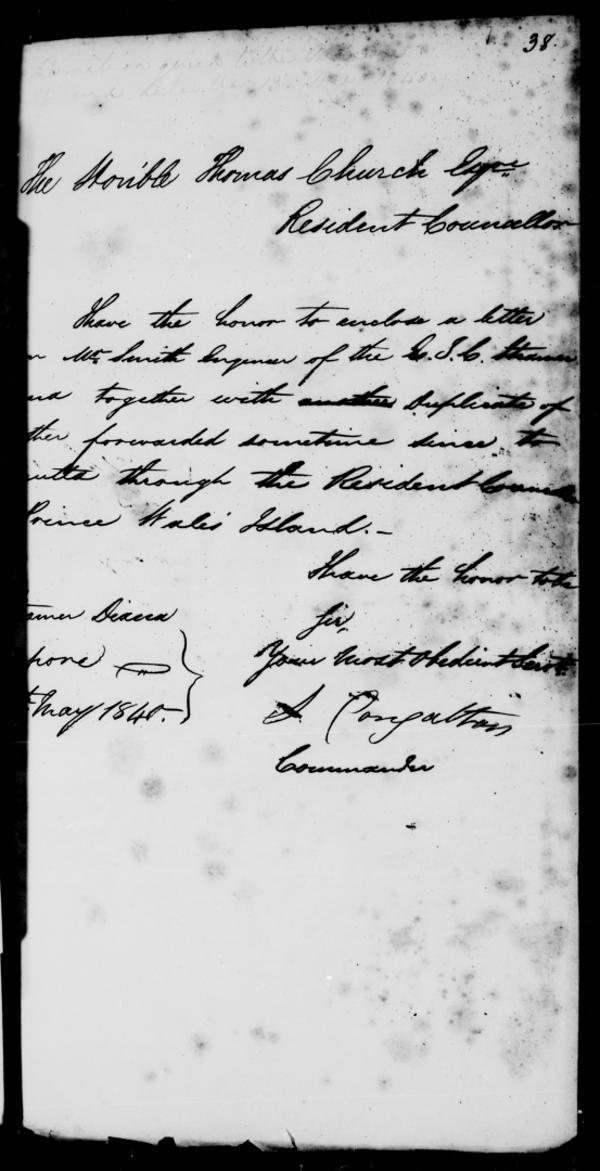 38.
The Honible Thomas Church Esqre
Resident Councellor
I have the honor to enclose a letter
Mr. Smith Engineer of the E. I. C. Steamer
together with another Duplicate of
forwarded sometime since to
through the Resident Council
Prince Wales Island. –
I have the honor to be
Diana
Sir,
pore
Your Most Obedient Servt.
May 1840.
S Congalton
Commander